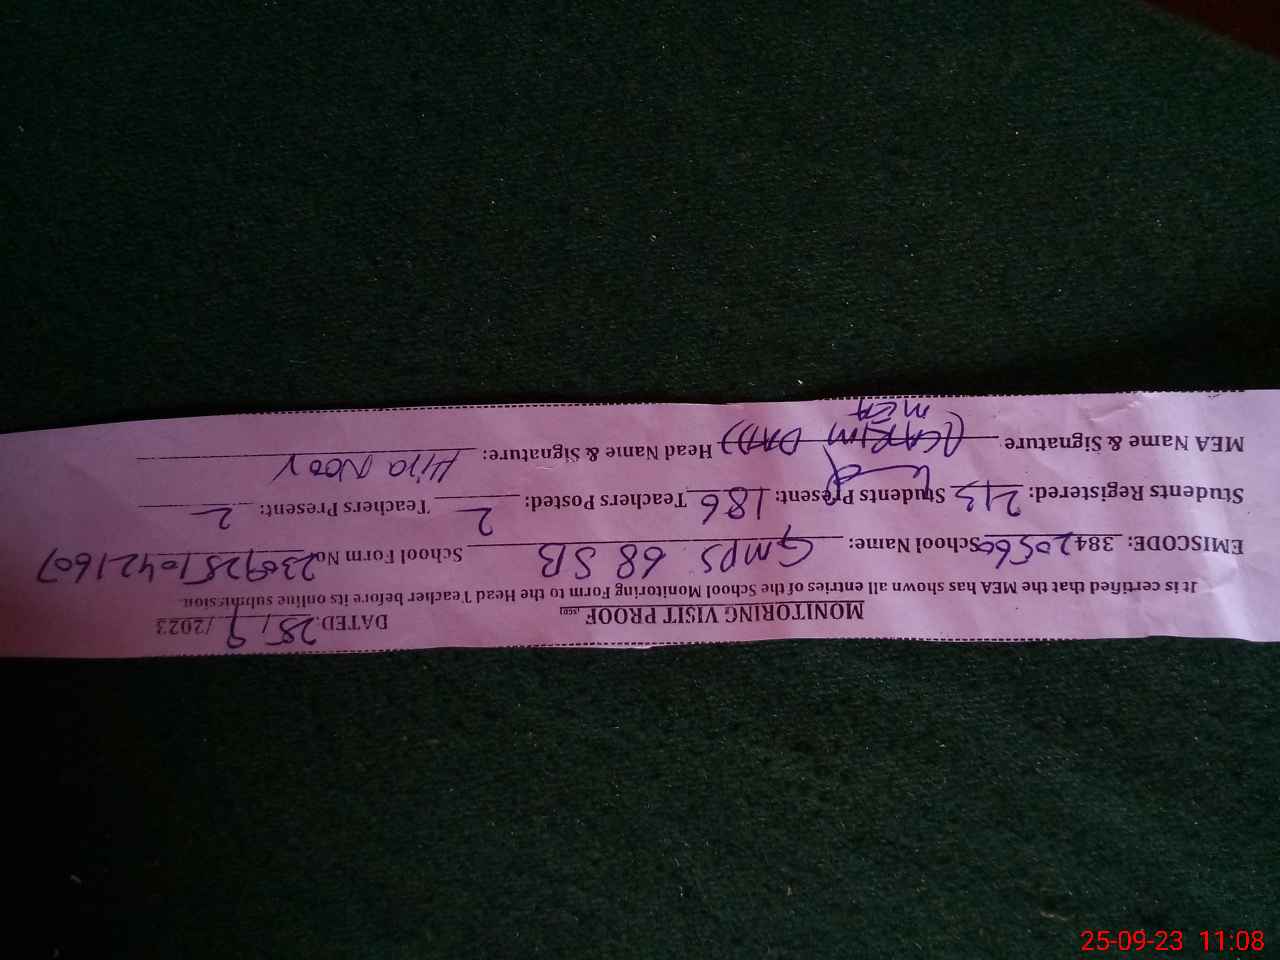 MONITORING VISIT PROOF DATED. 25/9/2023
It is certified that the MEA has shown all entries of the School Monitoring Form to the Head Teacher before its online submission.
EMISCODE: 38420560 School Name: GMPS 68 SB School Form No 23092510421607
Students Registered: 213 Students Present: 186 Teachers Posted: 2 Teachers Present: 2
MEA Name & Signature: (KARIM DAD) Head Name & Signature: Noor
MEA
25-09-23 11:08